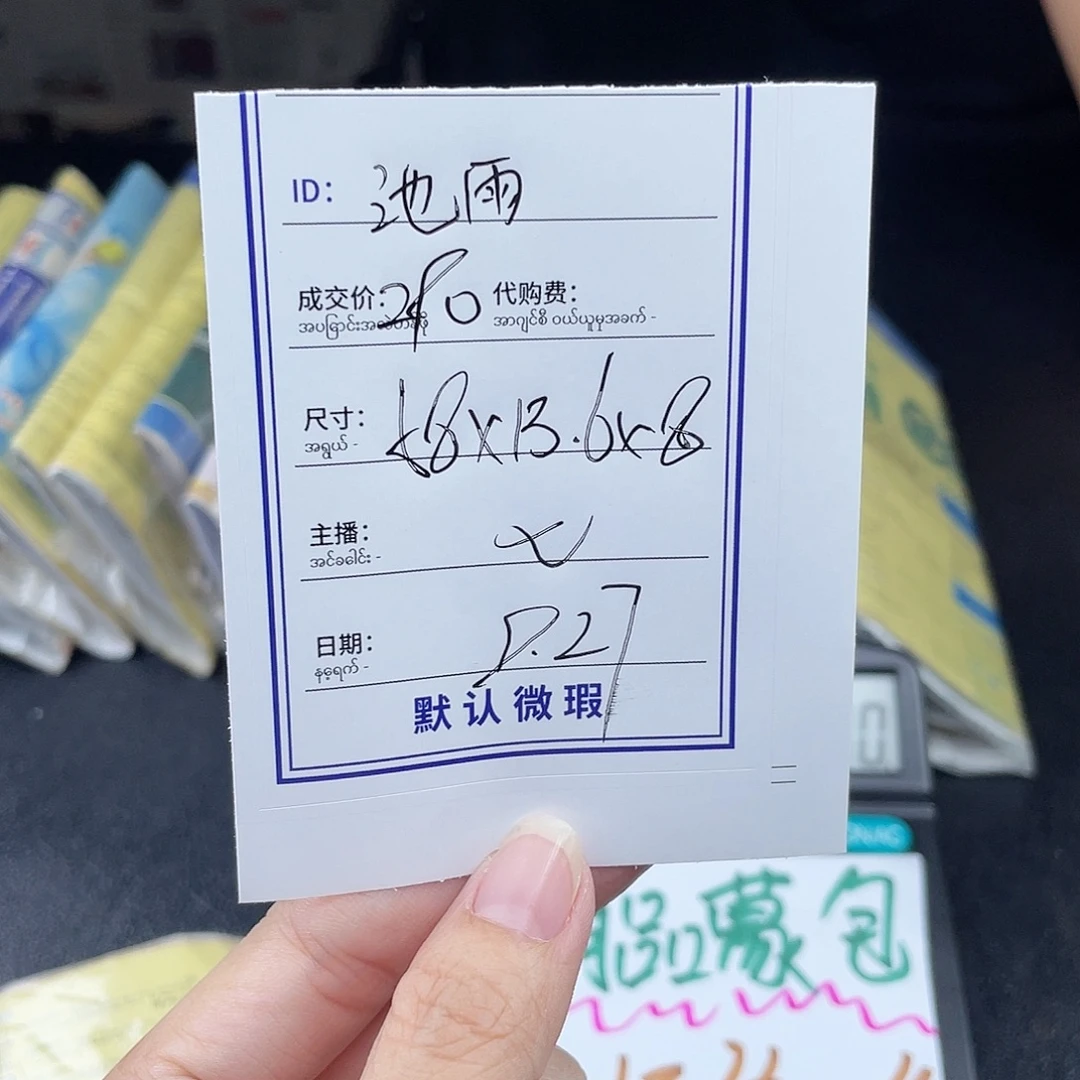 ID: 池雨
成交价: 280 代购费:
အပြောင်းအလဲတစ်ဖို အာဂျင်စီ ဝယ်ယူမှုအခက် -
尺寸: 18x13.6x8
အရွယ် -
主播:
အင်ခေါင်း -
日期: 5.27
နေ့ရက် -
默认微瑕
蒙包